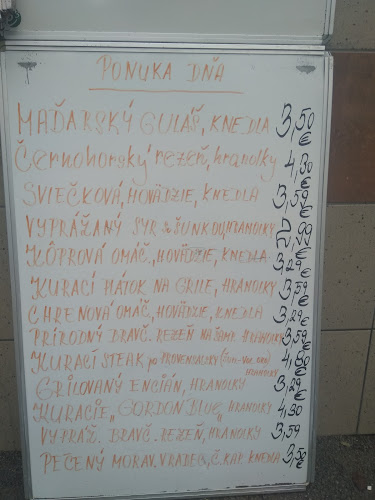 PONUKA DŇA
MAĎARSKÝ GULÁŠ, KNEDLA 3,50 €
Černohorský rezeň, hranolky 4,30 €
SVIEČKOVÁ, HOVÄDZIE, KNEDLA 3,59 €
VYPRÁŽANÝ SYR SO ŠUNKOU, HRANOLKY €
KÔPROVÁ OMÁČ., HOVÄDZIE, KNEDLA 3,29 €
KURACÍ PLÁTOK NA GRILE, HRANOLKY 3,59 €
CHRENOVÁ OMÁČ, HOVÄDZIE, KNEDLA 3,29 €
PRÍRODNÝ BRAVČ. REZEŇ NA HRANOLKY 3,59 €
KURACÍ STEAK po PROVENSALSKY HRANOLKY €
GRILOVANÝ ENCIÁN, HRANOLKY 3,29 €
KURACIE „GORDON BLUE„ HRANOLKY 4,30
VYPRÁŽ. BRAVČ. REZEŇ, HRANOLKY 3,59
PEČENÝ MORAV. VRABEC, Č. KAP. KNEDLA €